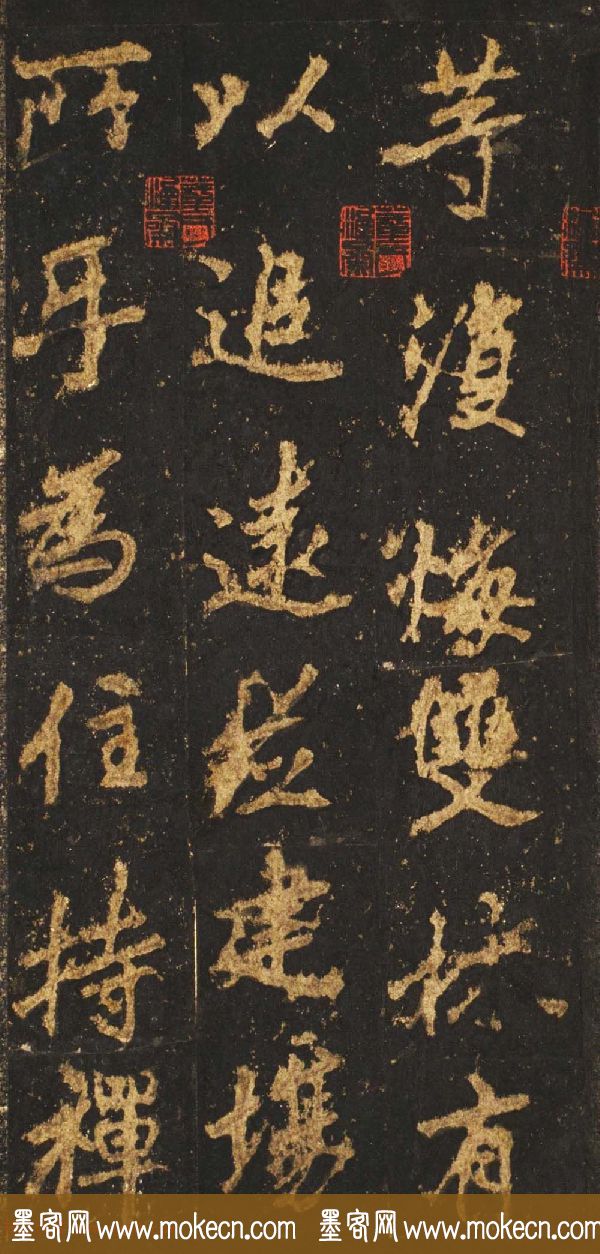 等復悔雙林有
以追遠建
所耳為住持禪
墨客网 www.mokecn.com 墨客网 www.mokecn.com